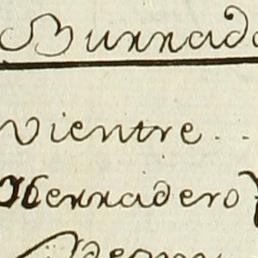 Burrada
vientre..
Herradero